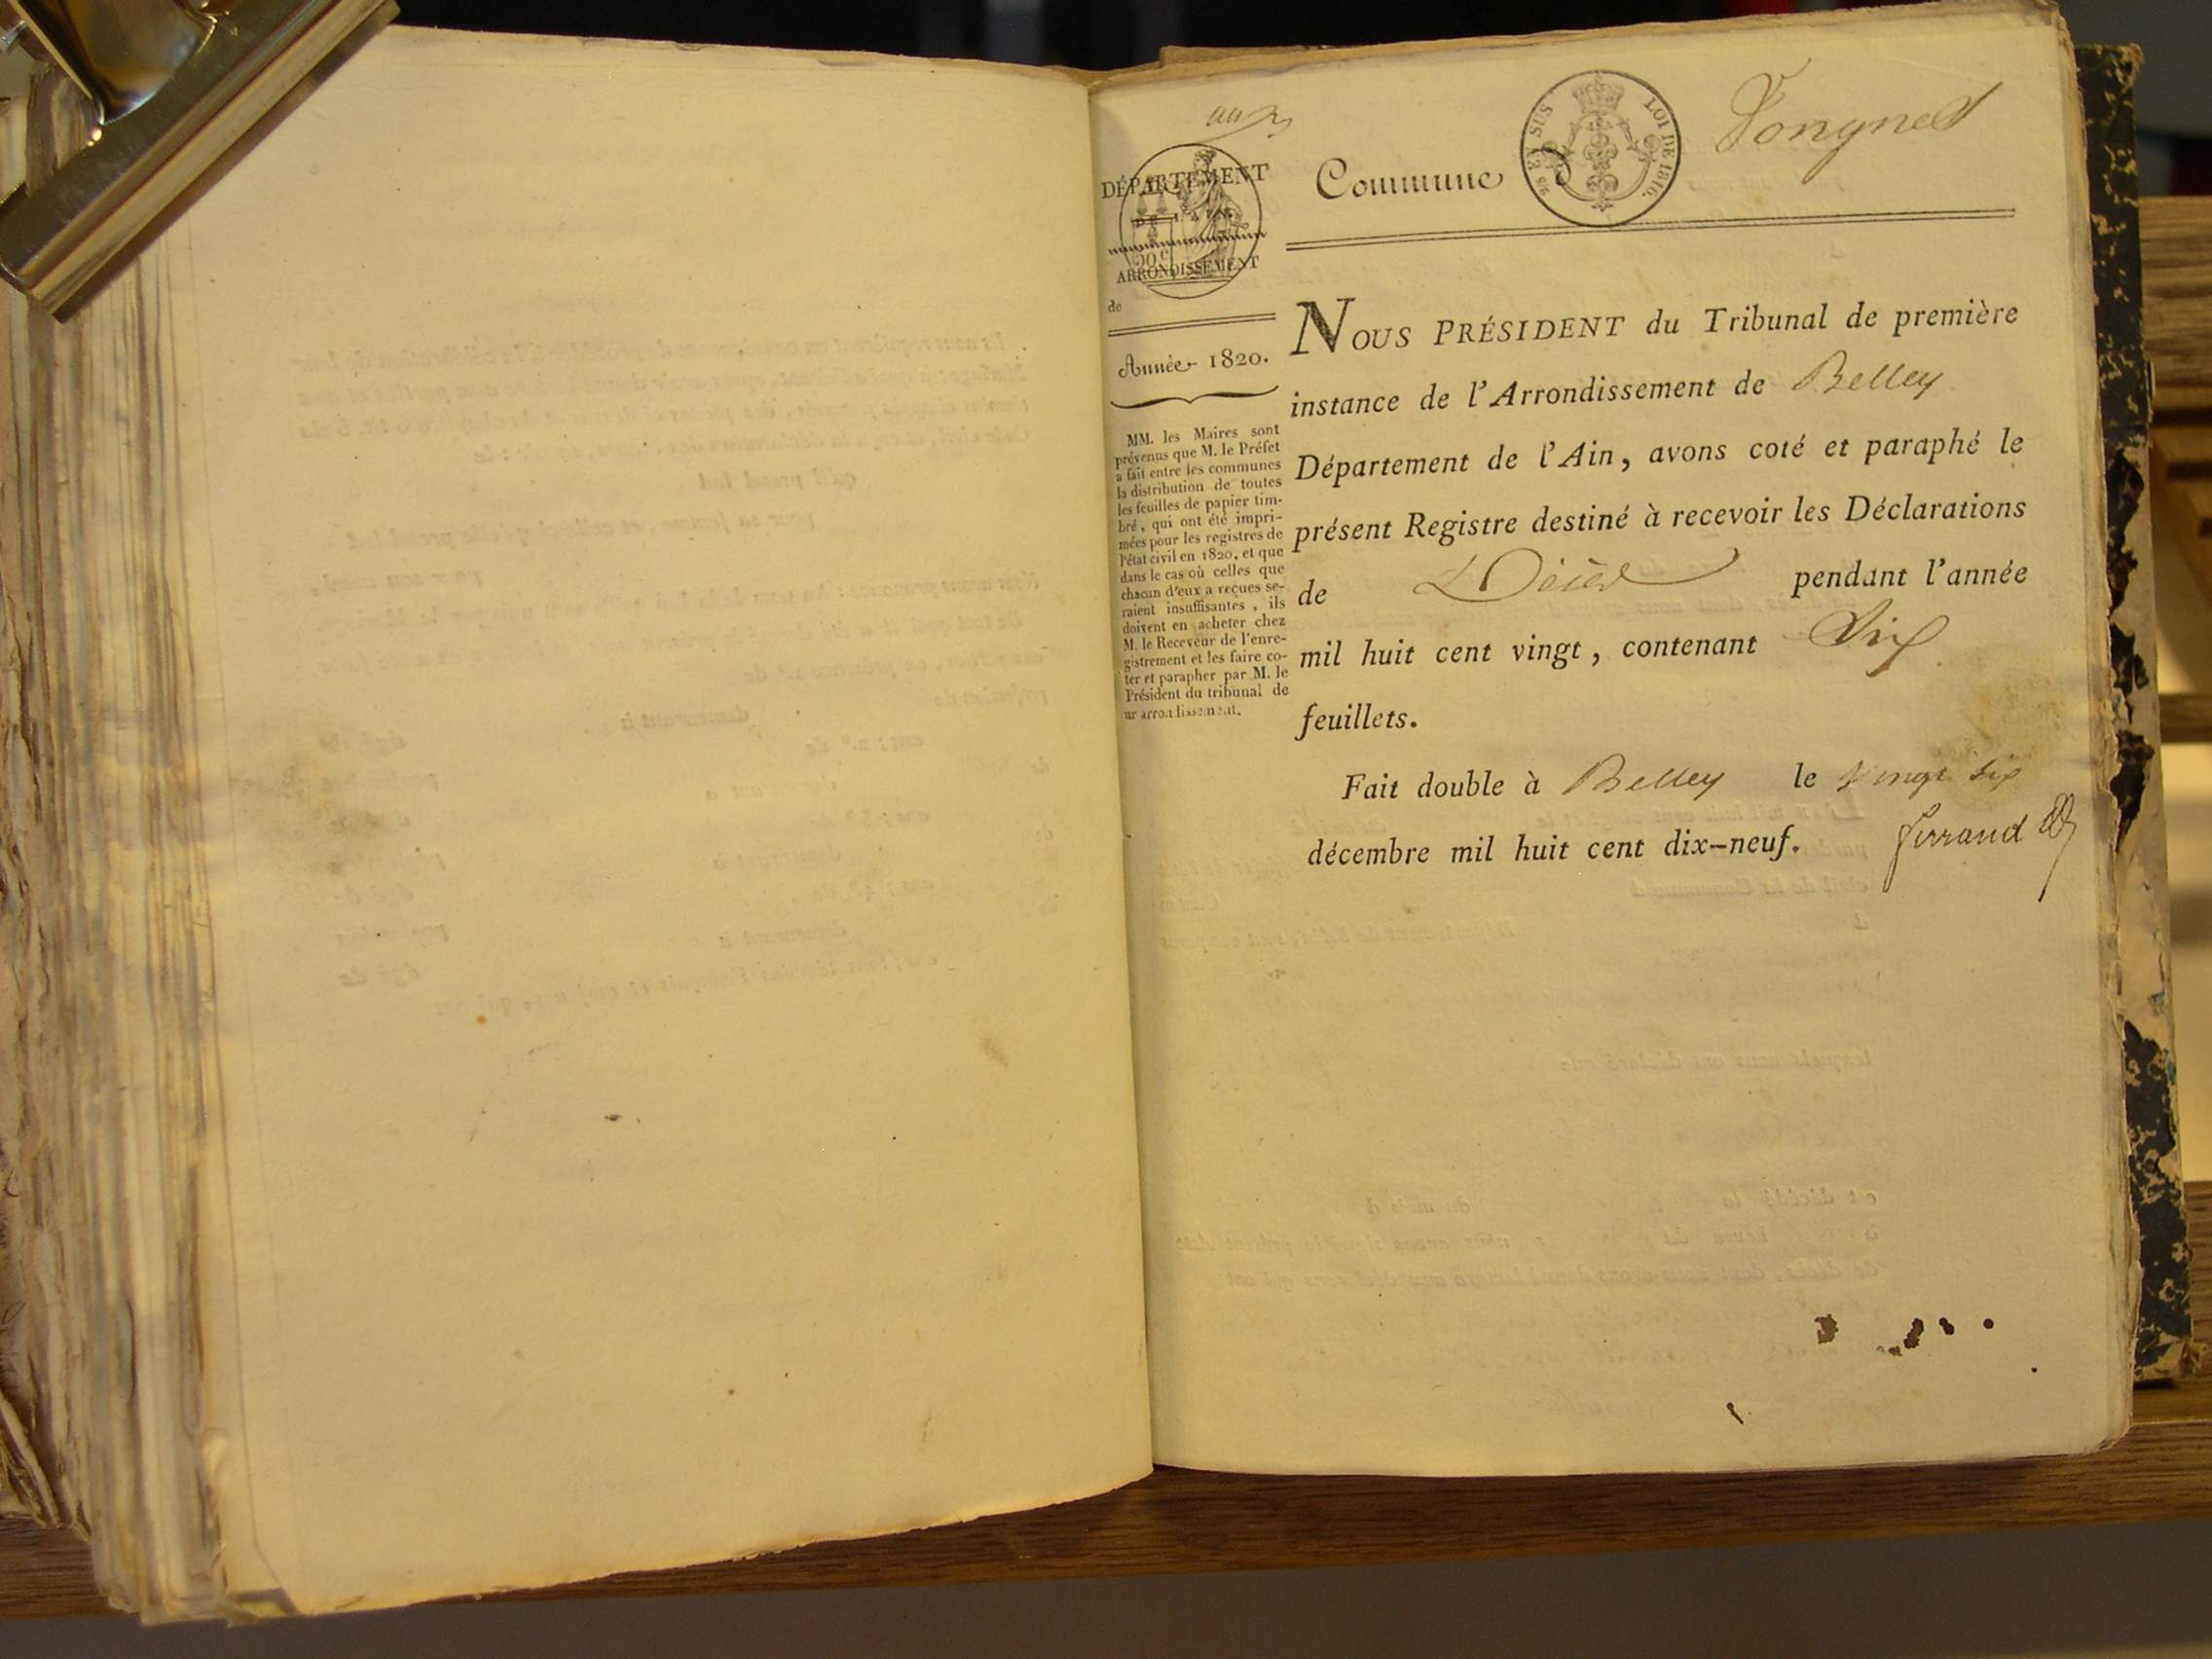 DÉPARTEMENT
DE L'AIN.
ARRONDISSEMENT
de
Année 1820.
MM. les Maires sont
prévenus que M. le Préfet
a fait entre les communes
la distribution de toutes
les feuilles de papier tim-
bré, qui ont été impri-
mées pour les registres de
l'état civil en 1820, et que
dans le cas où celles que
chacun d'eux a reçues se-
raient insuffisantes, ils
doivent en acheter chez
M. le Receveur de l'enre-
gistrement et les faire co-
ter et parapher par M. le
Président du tribunal de
ur arrondissement.
Commune d
LOI DE 1816.
NOUS PRÉSIDENT du Tribunal de première
instance de l'Arrondissement de Belley
Département de l'Ain, avons coté et paraphé le
présent Registre destiné à recevoir les Déclarations
de Décès pendant l'année
mil huit cent vingt, contenant
feuillets.
Fait double à Belley le vingt six
décembre mil huit cent dix-neuf. ferrand